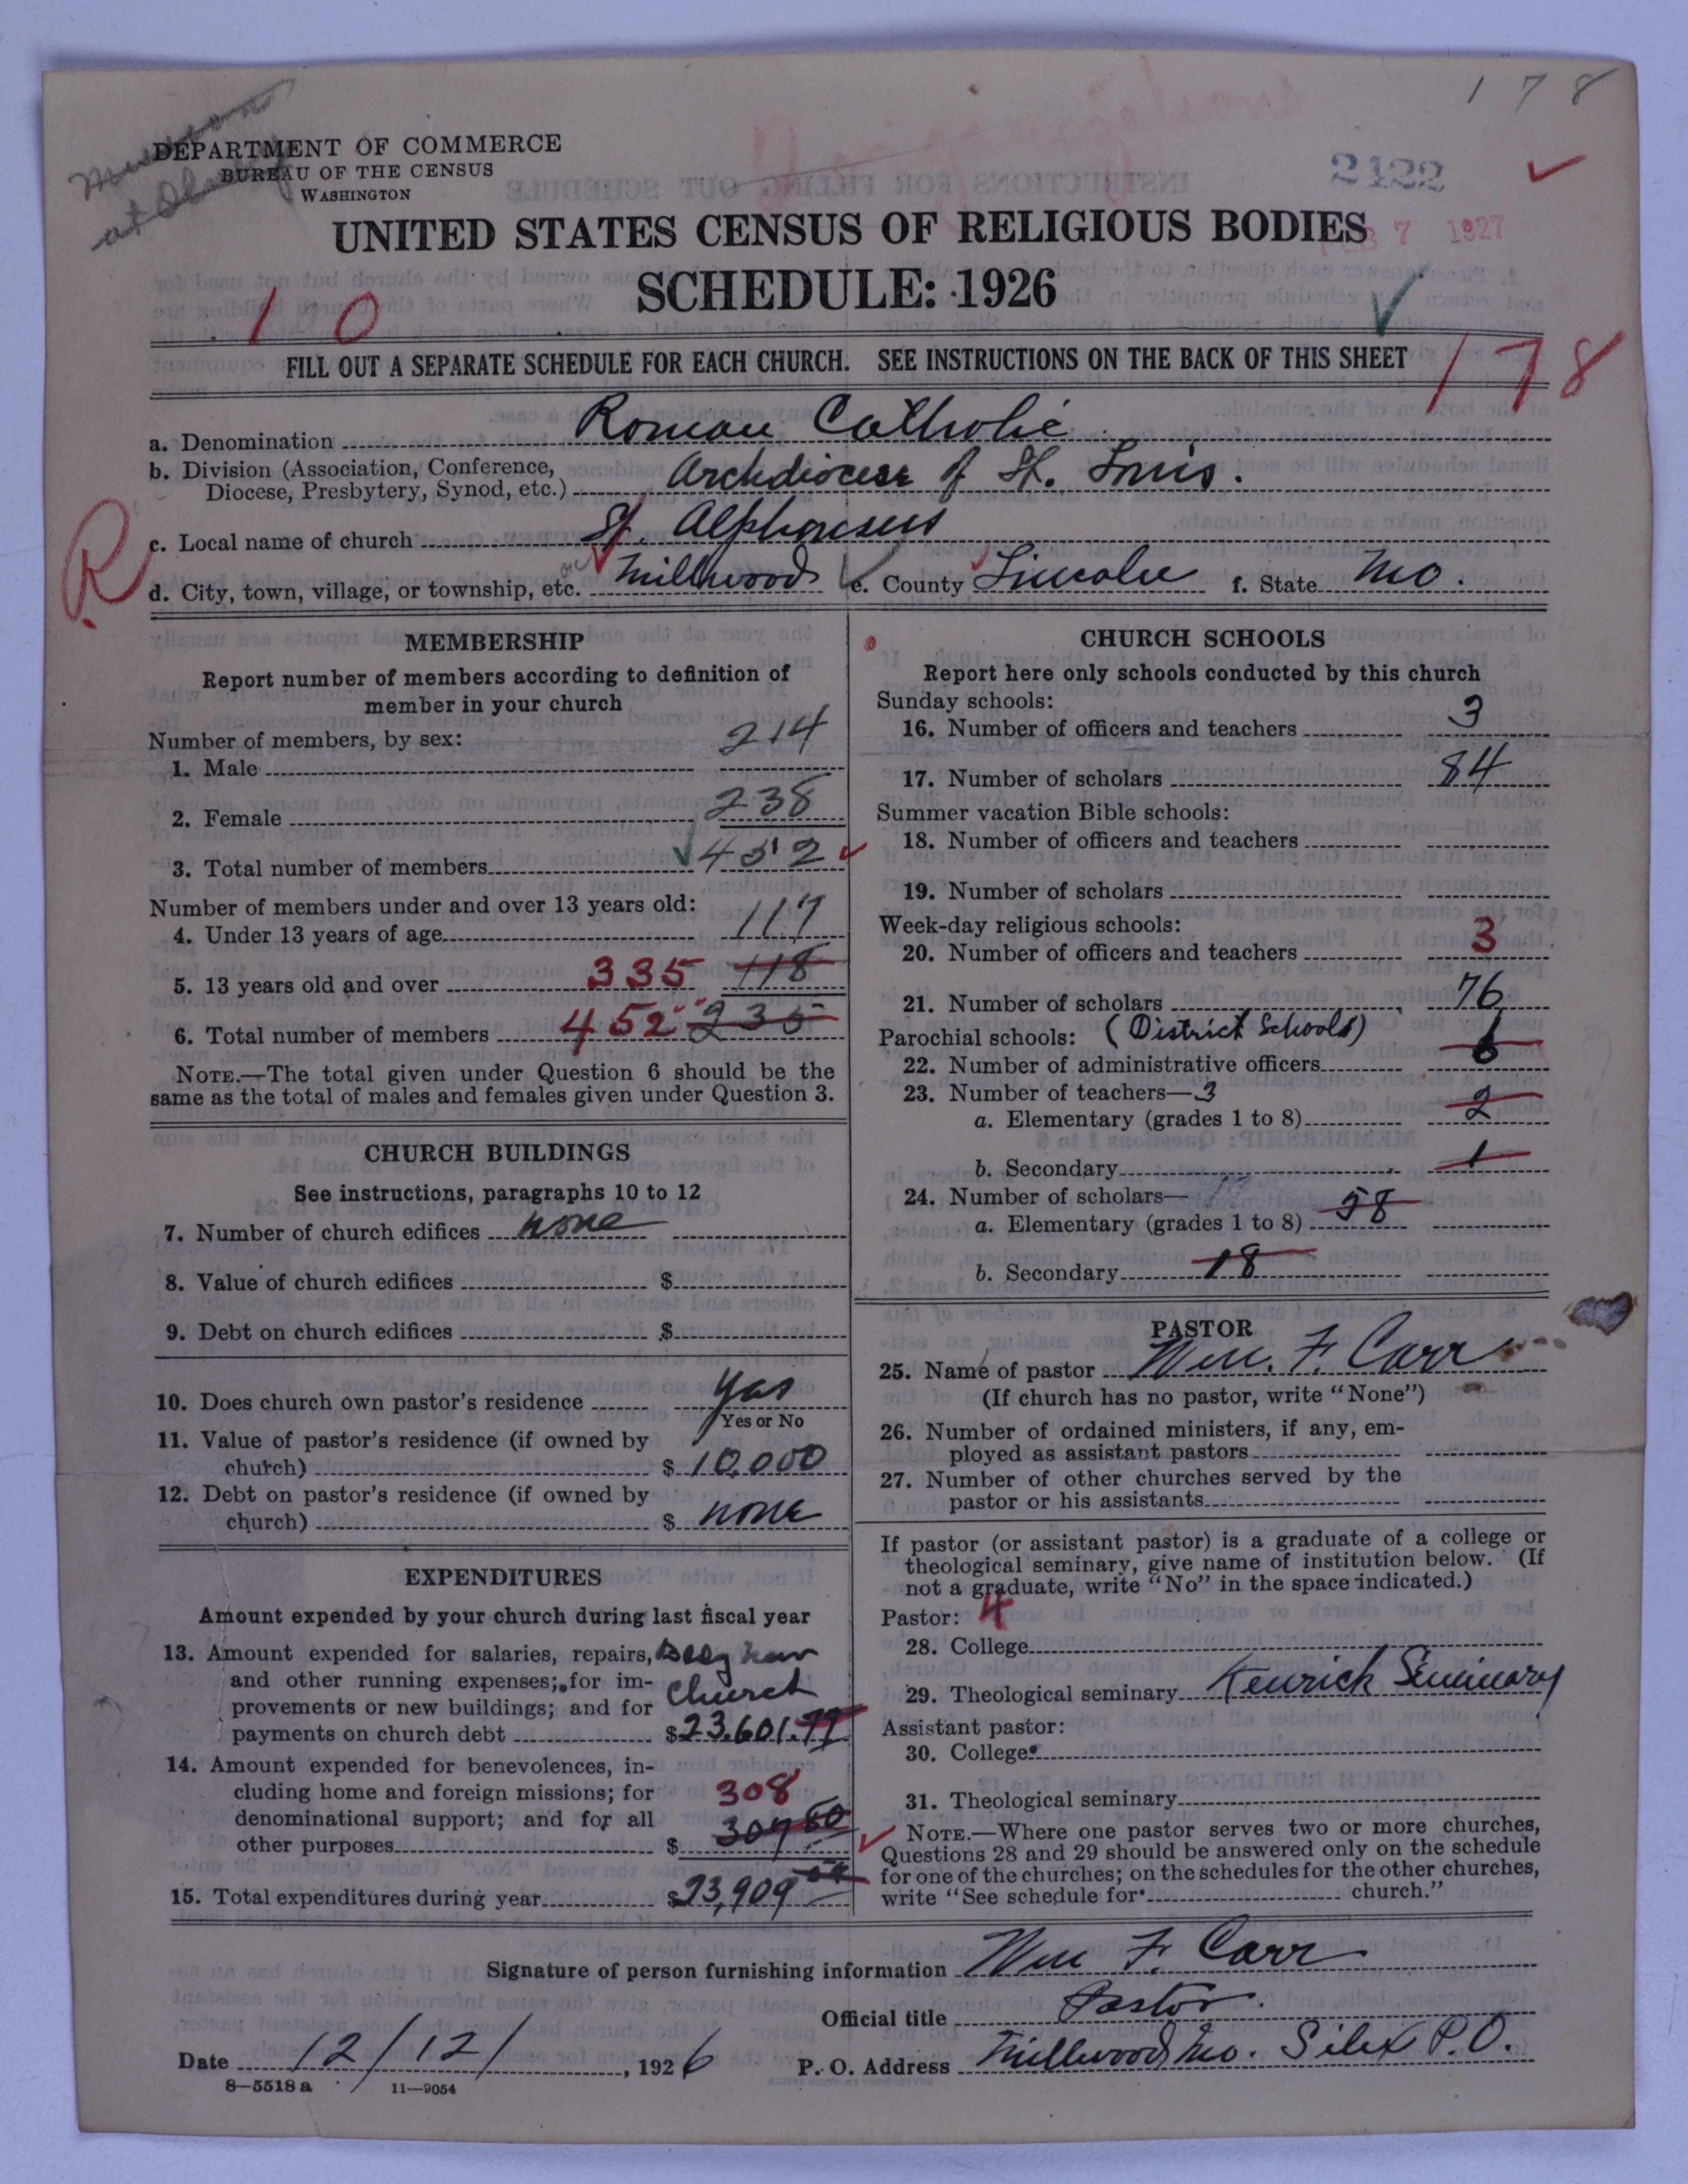 178
DEPARTMENT OF COMMERCE
BUREAU OF THE CENSUS
WASHINGTON
2122
7 1927
UNITED STATES CENSUS OF RELIGIOUS BODIES
SCHEDULE: 1926
1 0
FILL OUT A SEPARATE SCHEDULE FOR EACH CHURCH. SEE INSTRUCTIONS ON THE BACK OF THIS SHEET
178
a. Denomination Roman Catholic
b. Division (Association, Conference,
Diocese, Presbytery, Synod, etc.) Archdiocese of St. Louis.
R
c. Local name of church St. Alphonsus
d. City, town, village, or township, etc. Millwood e. County Lincoln f. State Mo.
MEMBERSHIP
Report number of members according to definition of
member in your church
Number of members, by sex:
1. Male 214
2. Female 238
3. Total number of members 452
Number of members under and over 13 years old:
4. Under 13 years of age 117
5. 13 years old and over 335 118
6. Total number of members 452 235
NOTE.—The total given under Question 6 should be the
same as the total of males and females given under Question 3.
CHURCH BUILDINGS
See instructions, paragraphs 10 to 12
7. Number of church edifices none
8. Value of church edifices $
9. Debt on church edifices $
10. Does church own pastor's residence yes
Yes or No
11. Value of pastor's residence (if owned by
church) $ 10,000
12. Debt on pastor's residence (if owned by
church) $ none
EXPENDITURES
Amount expended by your church during last fiscal year
13. Amount expended for salaries, repairs, Bldg new
and other running expenses; for im- church
provements or new buildings; and for
payments on church debt $23,601.77
14. Amount expended for benevolences, in-
cluding home and foreign missions; for 308
denominational support; and for all 307 60
other purposes $
15. Total expenditures during year $23,909
CHURCH SCHOOLS
Report here only schools conducted by this church
Sunday schools:
16. Number of officers and teachers 3
17. Number of scholars 84
Summer vacation Bible schools:
18. Number of officers and teachers
19. Number of scholars
Week-day religious schools:
20. Number of officers and teachers 3
21. Number of scholars 76
Parochial schools: (District Schools)
22. Number of administrative officers 6
23. Number of teachers—3
a. Elementary (grades 1 to 8) 2
b. Secondary 1
24. Number of scholars—
a. Elementary (grades 1 to 8) 58
b. Secondary 18
PASTOR
25. Name of pastor Wm. F. Carr
(If church has no pastor, write "None")
26. Number of ordained ministers, if any, em-
ployed as assistant pastors
27. Number of other churches served by the
pastor or his assistants
If pastor (or assistant pastor) is a graduate of a college or
theological seminary, give name of institution below. (If
not a graduate, write "No" in the space indicated.)
Pastor: 4
28. College
29. Theological seminary Kenrick Seminary
Assistant pastor:
30. College
31. Theological seminary
NOTE.—Where one pastor serves two or more churches,
Questions 28 and 29 should be answered only on the schedule
for one of the churches; on the schedules for the other churches,
write "See schedule for church."
Signature of person furnishing information Wm F. Carr
Official title Pastor.
Date 12/12/, 1926 P. O. Address Millwood Mo. Silex P.O.
8—5518 a 11—9054